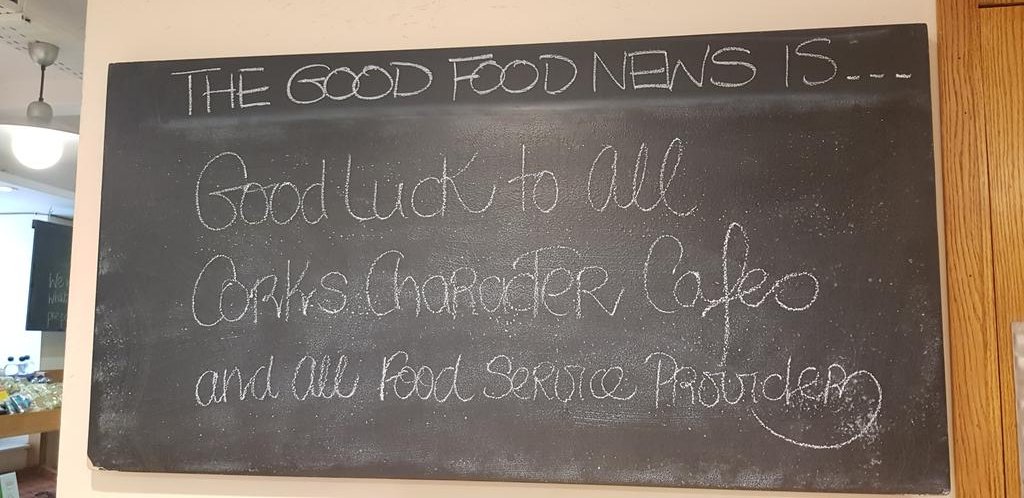 THE GOOD FOOD NEWS IS...
Good Luck to all
Corks Character Cafes
and all Food Service Providers